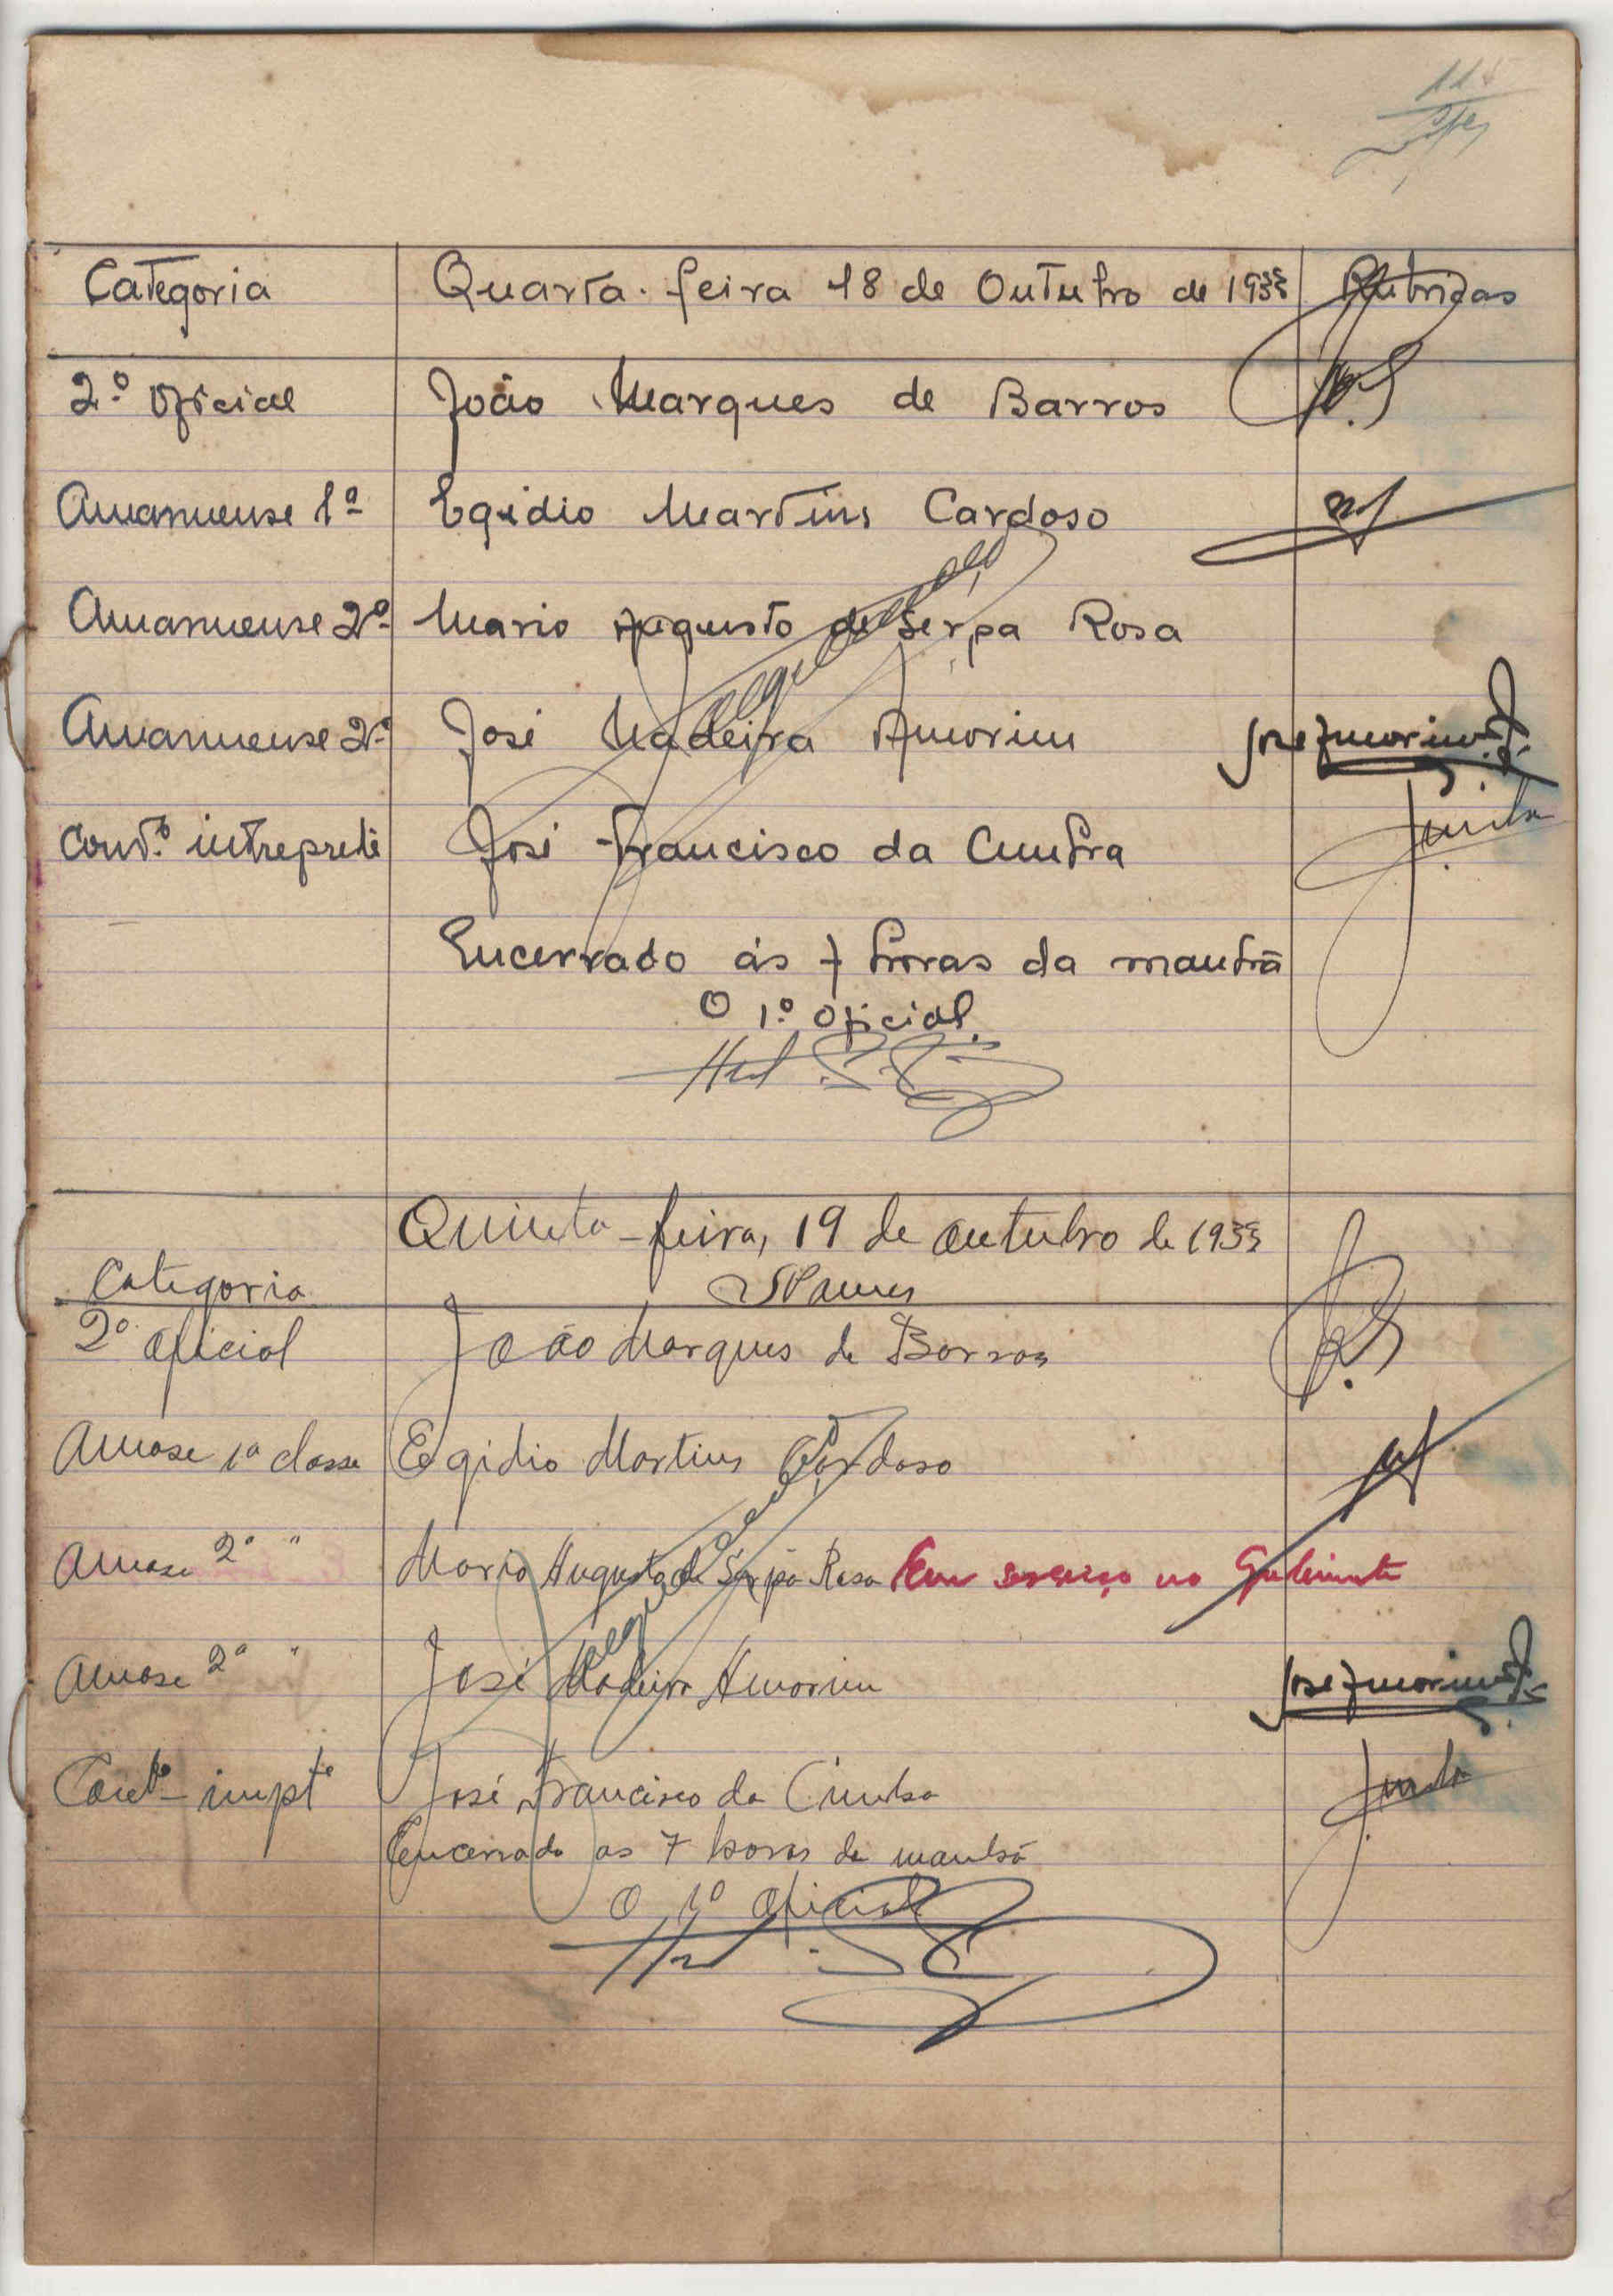 115
Categoria Quarta-feira 18 de Outubro de 1933 Rubricas
2.º Oficial João Marques de Barros
Amanuense 1ª Egidio Martins Cardoso
Amanuense 2º Mario Augusto de Serpa Rosa
Amanuense 2º José Madeira Amorim José Amorim
Contº intreprete José Francisco da Cunha Cunha
Encerrado ás 7 horas da manhã
O 1.º Oficial,
Quinta-feira, 19 de outubro de 1933
Categoria Nomes
2º oficial João Marques de Barros
Amase 1ª classe Egidio Martins Cardoso
Amase 2ª " Mario Augusto de Serpa Rosa Em serviço no Gabinete
Amase 2ª " José Madeira Amorim José Amorim
Contº impte José Francisco da Cunha Cunha
Encerrado as 7 horas da manhã
O 1º Oficial